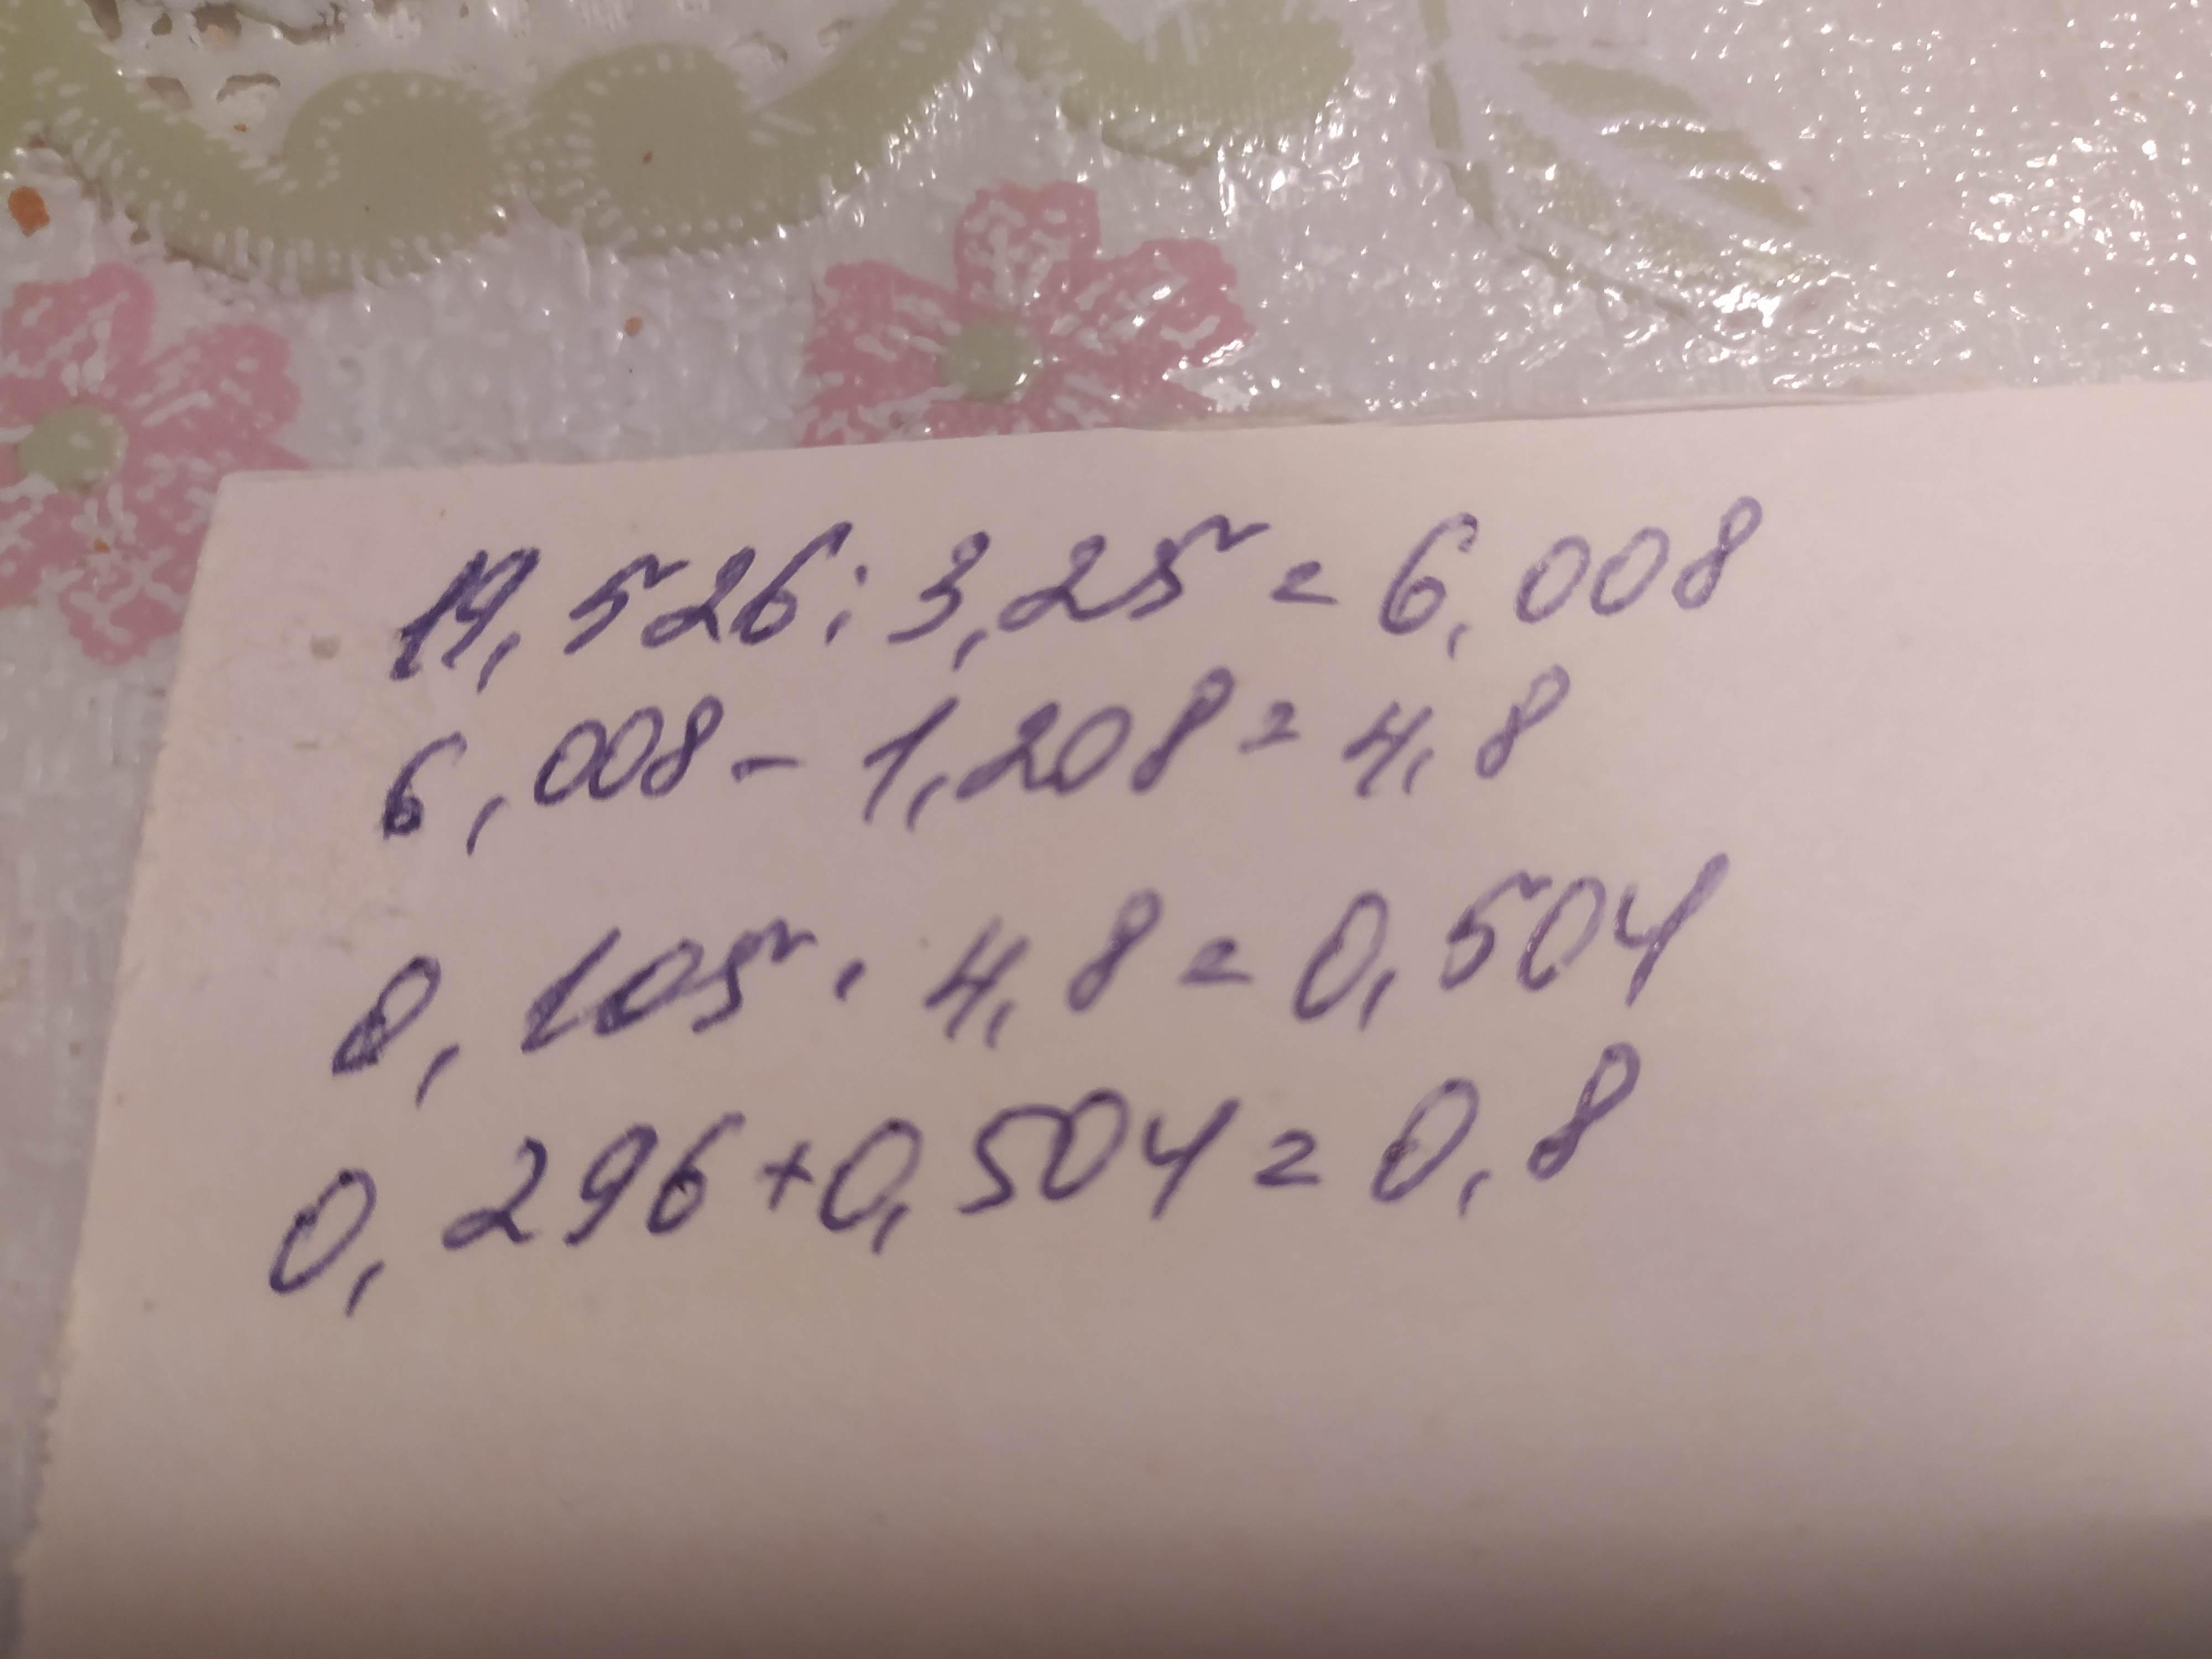 19,526:3,25=6,008
6,008-1,208=4,8
0,105·4,8=0,504
0,296+0,504=0,8